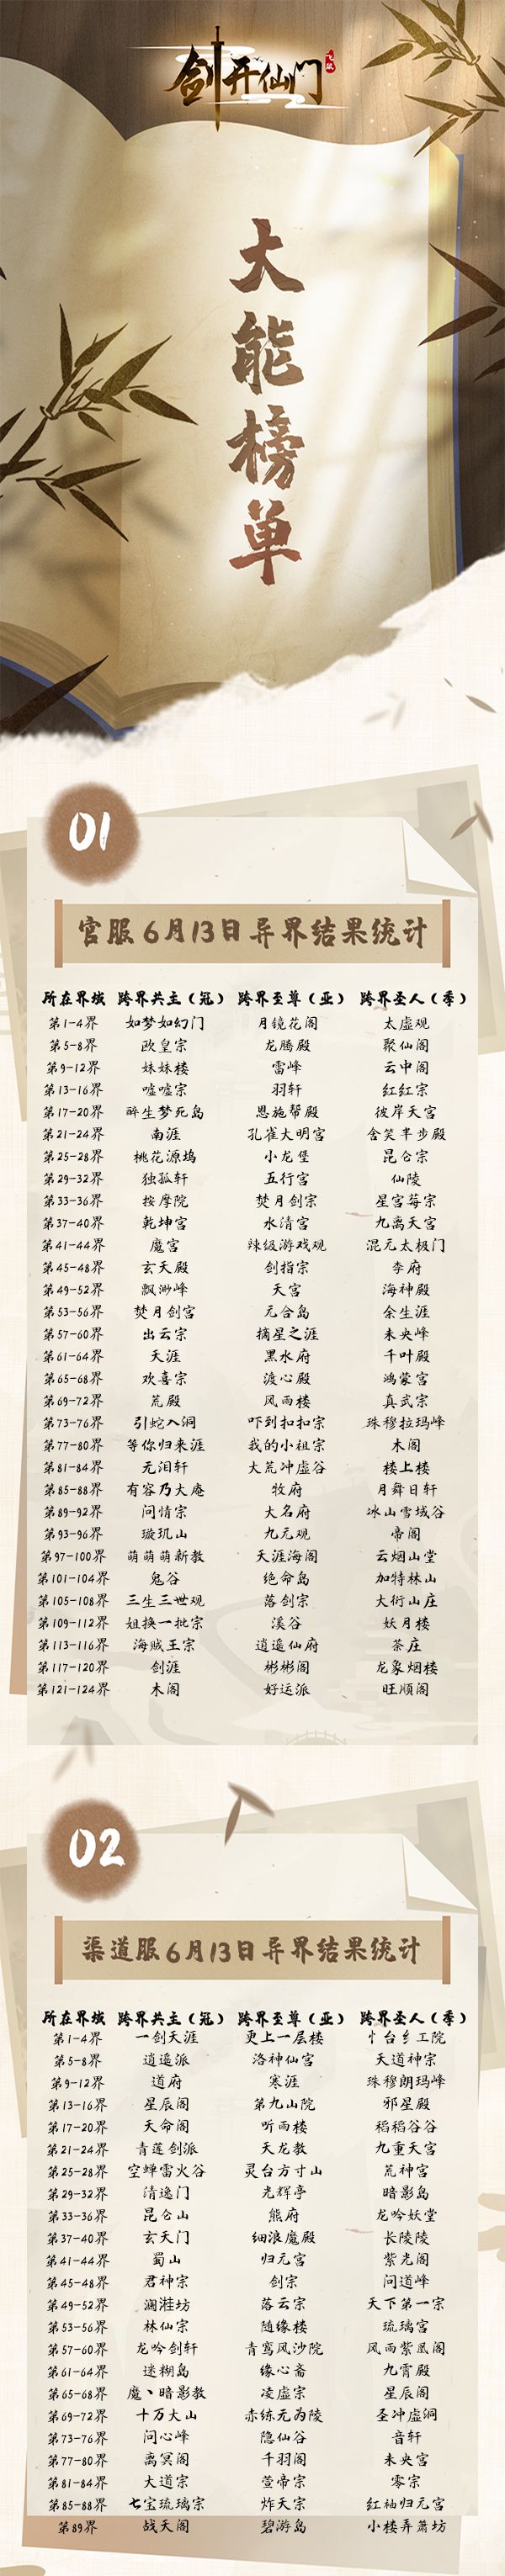 剑开仙门
大能榜单
01
官服6月13日异界结果统计
所在界域 跨界共主（冠） 跨界至尊（亚） 跨界圣人（季）
第1-4界 如梦如幻门 月镜花阁 太虚观
第5-8界 欧皇宗 龙腾殿 聚仙阁
第9-12界 妹妹楼 雷峰 云中阁
第13-16界 嘘嘘宗 羽轩 红红宗
第17-20界 醉生梦死岛 恩施帮殿 彼岸天宫
第21-24界 南涯 孔雀大明宫 含笑半步殿
第25-28界 桃花源坞 小龙堡 昆仑宗
第29-32界 独孤轩 五行宫 仙陵
第33-36界 按摩院 焚月剑宗 星宫莓宗
第37-40界 乾坤宫 水清宫 九离天宫
第41-44界 魔宫 辣级游戏观 混元太极门
第45-48界 玄天殿 剑指宗 李府
第49-52界 飘渺峰 天宫 海神殿
第53-56界 焚月剑宫 元合岛 余生涯
第57-60界 出云宗 摘星之涯 未央峰
第61-64界 天涯 黑水府 千叶殿
第65-68界 欢喜宗 渡心殿 鸿蒙宫
第69-72界 荒殿 风雨楼 真武宗
第73-76界 引蛇入洞 吓到扣扣宗 珠穆拉玛峰
第77-80界 等你归来涯 我的小祖宗 木阁
第81-84界 元泪轩 大荒冲虚谷 楼上楼
第85-88界 有容乃大庵 牧府 月舞日轩
第89-92界 问情宗 大名府 冰山雪域谷
第93-96界 璇玑山 九元观 帝阁
第97-100界 萌萌萌新教 天涯海阁 云烟山堂
第101-104界 鬼谷 绝命岛 加特林山
第105-108界 三生三世观 落剑宗 大衍山庄
第109-112界 姐换一批宗 溪谷 妖月楼
第113-116界 海贼王宗 逍遥仙府 茶庄
第117-120界 剑涯 彬彬阁 龙象烟楼
第121-124界 木阁 好运派 旺顺阁
02
渠道服6月13日异界结果统计
所在界域 跨界共主（冠） 跨界至尊（亚） 跨界圣人（季）
第1-4界 一剑天涯 更上一层楼 忄台纟工院
第5-8界 逍遥派 洛神仙宫 天道神宗
第9-12界 道府 寒涯 珠穆朗玛峰
第13-16界 星辰阁 第九山院 邪星殿
第17-20界 天命阁 听雨楼 稻稻谷谷
第21-24界 青莲剑派 天龙教 九重天宫
第25-28界 空蝉雷火谷 灵台方寸山 荒神宫
第29-32界 清逸门 光辉亭 暗影岛
第33-36界 昆仑山 熊府 龙吟妖堂
第37-40界 玄天门 细浪魔殿 长陵陵
第41-44界 蜀山 归元宫 紫光阁
第45-48界 君神宗 剑宗 问道峰
第49-52界 澜湉坊 落云宗 天下第一宗
第53-56界 林仙宗 随缘楼 琉璃宫
第57-60界 龙吟剑轩 青鸾风沙院 风雨紫凰阁
第61-64界 迷糊岛 缘心斋 九霄殿
第65-68界 魔丶暗影教 凌虚宗 星辰阁
第69-72界 十万大山 赤练元为陵 圣冲虚洞
第73-76界 问心峰 隐仙谷 音轩
第77-80界 离冥阁 千羽阁 未央宫
第81-84界 大道宗 萱帝宗 零宗
第85-88界 七宝琉璃宗 炸天宗 红袖归元宫
第89界 战天阁 碧游岛 小楼弄萧坊